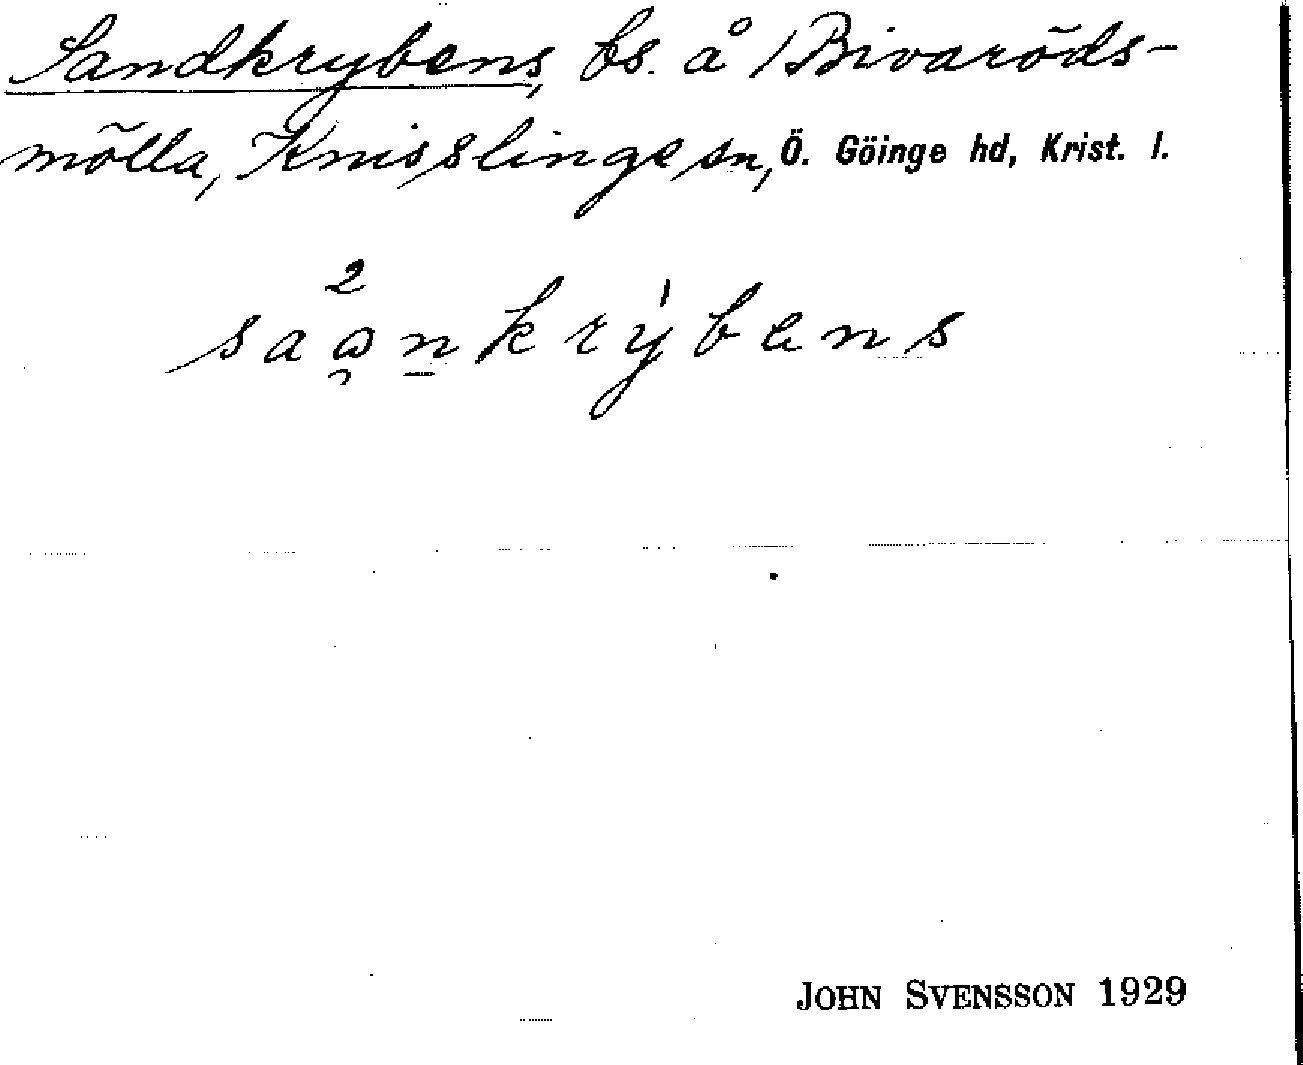 Sandkrybens, bs. å Bivaröds-
mölla, Knisslinge sn, Ö. Göinge hd, Krist. l.
JOHN SVENSSON 1929